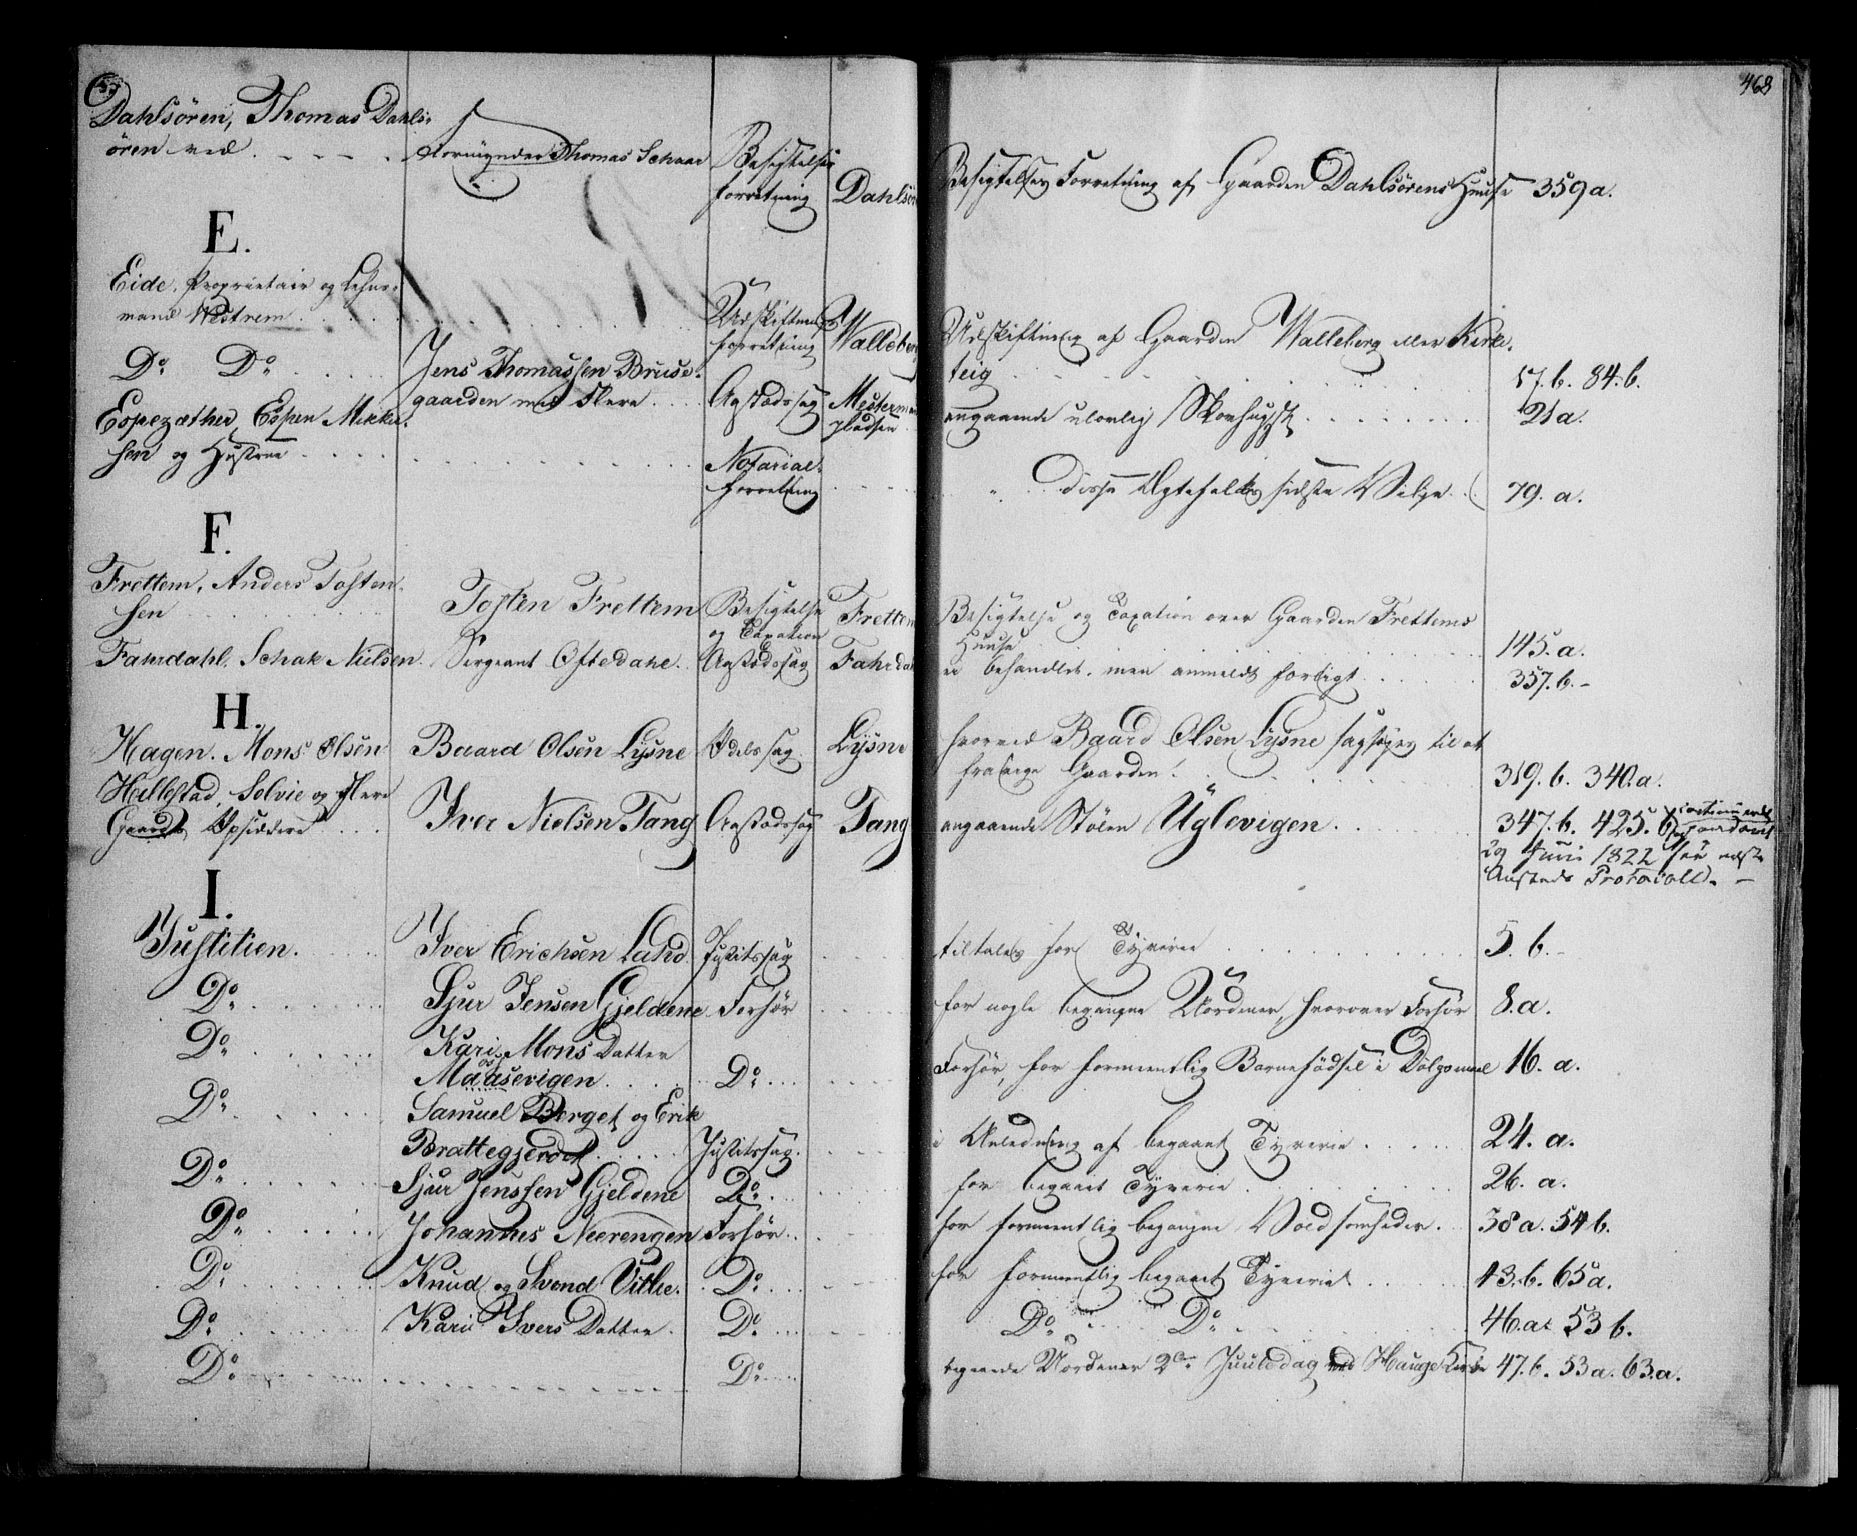 468
Dahlsören, Thomas Dahls-
ören ved . . . . . Formynder Thomas Schaar Besigtelses
forretning Dahlsör Besigtelses Forretning af Gaarden Dahlsörens Huuse 359 a.
E.
Eide, Proprietair og Lehns-
mand Westrem . . . . Udskiftnings
forretning Walleberg Udskiftning af Gaarden Walleberg eller Kirke-
teig 57. b. 84. b.
Do Do . . . . Jens Thomassen Bruse-
gaarden med Flere . . . Aastædssag Mesterman
pladsen angaaende ulovlig Skovhugst . . . . 21 a.
Espezæther, Espen Mikkel-
sen og Hustrue . . . . Notarial-
forretning . . . disse Ægtefolks sidste Villje . . 79. a.
F.
Frettem, Anders Tosten-
sen Tosten Frettem Besigtelse
og Taxation Frettem Besigtelse og Taxation over Gaarden Frettems
Huuse 145. a.
Fahrdahl, Schak Nielsen Sergeant Oftedahl. Aastædssag Fahrdal ei behandlet, men anmeldt forligt . . . . 357. b. -
H.
Hagen, Mons Olsen Baard Olsen Lysne Odelssag Lysne hvorved Baard Olsen Lysne sagsøges til at
fravige Gaarden. 319. b. 340. a.
Hellestad, Solvie og flere
Gaards Opsiddere . . . Iver Nielsen Tang Aastædssag Tang angaaende Stölen Uglevigen . . . 347. b. 425. b.
og Juni 1822 see næste
Aasteds Protocoll. -
I.
Justitien. . . . Iver Erichsen Land Justitssag tiltales for Tyverie . . . . 5. b. -
Do . . . . Sjur Jensen Gjeldene Forhör for nogle begangne Uordener, hvorover Forhör 8. a.
Do . . . . Kari Mons Datter
Maasevigen . . . . Do . . . Forhör, for formeentlig Barnefödsel i Dölgsmaal 16. a.
Do . . . . Samuel Berget og Erik
Brattegjerdet . . . . Justitssag. i Anledning af begaaet Tyverie . . . . 24. a.
Do . . . . Sjur Jenssen Gjeldene Do . . . for begaaet Tyverie . . . . 26. a.
Do . . . . Johannes Neerengen Forhör . . for formeentlig begangne Voldsomheder . 38 a. 54 b.
Do . . . . Knud og Svend Vitlie. Do . . . for formeentlig begaaet Tyverie . . . . 43. b. 65 a.
Do . . . . Kari Ivers Datter . Do . . . Do Do . . . . 46. a. 53 b.
Do . . . . Do . . . Uordener 2den Juuledag ved Hauge Kirke 47. b. 53 a. 63. a.